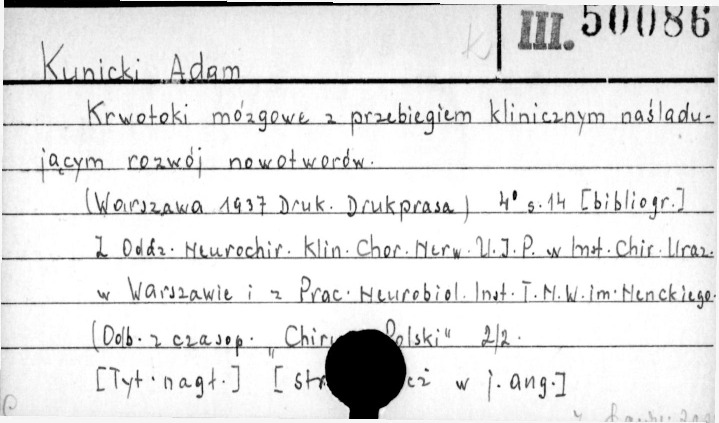 III. 50086
Kunicki Adam
Krwotoki mózgowe z przebiegiem klinicznym naśladu-
jącym rozwój nowotworów.
(Warszawa 1937 Druk. Drukprasa) 4° s. 14 [bibliogr.]
Z Oddz. Neurochir. Klin. Chor. Nerw. U.J.P. w Inst. Chir. Uraz.
w Warszawie i z Prac. Neurobiol. Inst. T.N.W. im. Nenckiego.
(Odb. z czasop. „Chir Polski" 2/2.
[Tyt. nagł.] [str w j. ang.]